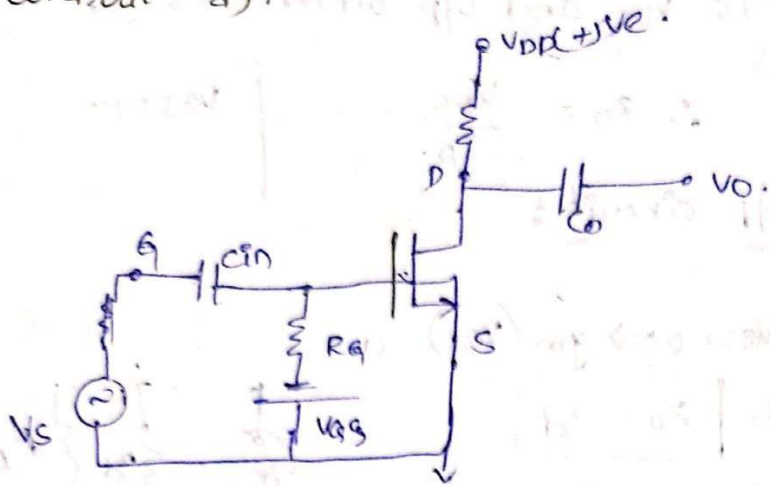 VDD(+)ve.
D
VO.
Co
G
Cin
RG
S
VGG
VS